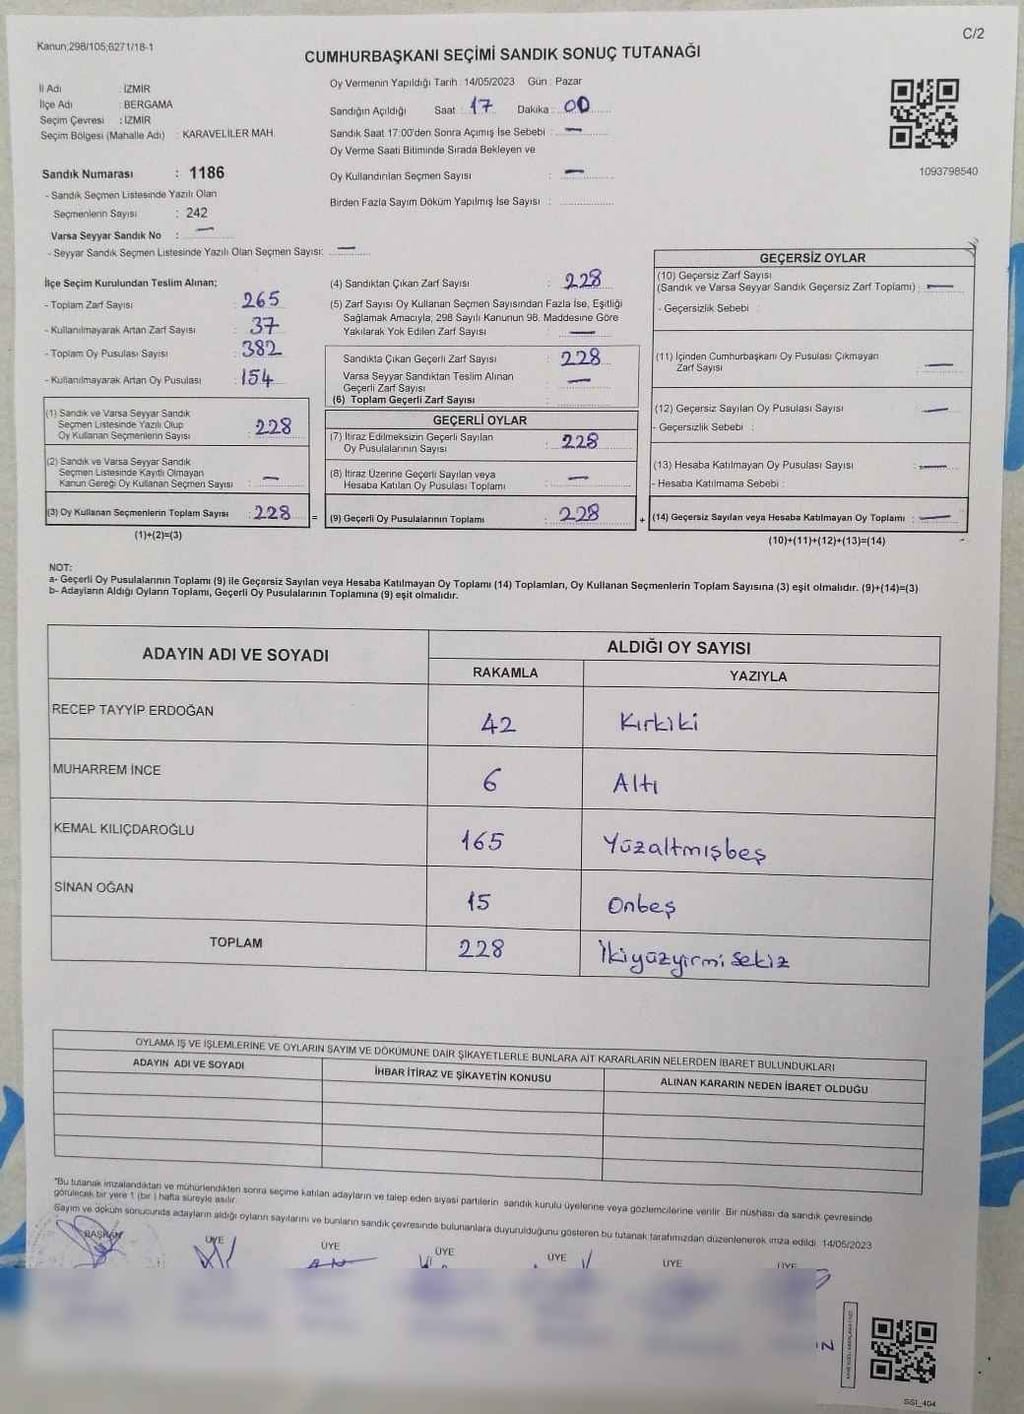 Kanun;298/105;6271/18-1
C/2
CUMHURBAŞKANI SEÇİMİ SANDIK SONUÇ TUTANAĞI
İl Adı : İZMİR
İlçe Adı : BERGAMA
Seçim Çevresi : İZMİR
Seçim Bölgesi (Mahalle Adı) : KARAVELİLER MAH.
Sandık Numarası : 1186
- Sandık Seçmen Listesinde Yazılı Olan
Seçmenlerin Sayısı : 242
Varsa Seyyar Sandık No : —
- Seyyar Sandık Seçmen Listesinde Yazılı Olan Seçmen Sayısı: —
Oy Vermenin Yapıldığı Tarih : 14/05/2023 Gün : Pazar
Sandığın Açıldığı Saat : 17 Dakika : 00
Sandık Saat 17:00'den Sonra Açımış İse Sebebi : —
Oy Verme Saati Bitiminde Sırada Bekleyen ve
Oy Kullandırılan Seçmen Sayısı : —
Birden Fazla Sayım Döküm Yapılmış İse Sayısı :
1093798540
İlçe Seçim Kurulundan Teslim Alınan;
- Toplam Zarf Sayısı : 265
- Kullanılmayarak Artan Zarf Sayısı : 37
- Toplam Oy Pusulası Sayısı : 382
- Kullanılmayarak Artan Oy Pusulası : 154
(1) Sandık ve Varsa Seyyar Sandık
Seçmen Listesinde Yazılı Olup
Oy Kullanan Seçmenlerin Sayısı : 228
(2) Sandık ve Varsa Seyyar Sandık
Seçmen Listesinde Kayıtlı Olmayan
Kanun Gereği Oy Kullanan Seçmen Sayısı : —
(3) Oy Kullanan Seçmenlerin Toplam Sayısı : 228 =
(1)+(2)=(3)
(4) Sandıktan Çıkan Zarf Sayısı : 228
(5) Zarf Sayısı Oy Kullanan Seçmen Sayısından Fazla İse, Eşitliği
Sağlamak Amacıyla; 298 Sayılı Kanunun 98. Maddesine Göre
Yakılarak Yok Edilen Zarf Sayısı : —
Sandıkta Çıkan Geçerli Zarf Sayısı : 228
Varsa Seyyar Sandıktan Teslim Alınan
Geçerli Zarf Sayısı : —
(6) Toplam Geçerli Zarf Sayısı :
GEÇERLİ OYLAR
(7) İtiraz Edilmeksizin Geçerli Sayılan
Oy Pusulalarının Sayısı : 228
(8) İtiraz Üzerine Geçerli Sayılan veya
Hesaba Katılan Oy Pusulası Toplamı : —
(9) Geçerli Oy Pusulalarının Toplamı : 228 +
GEÇERSİZ OYLAR
(10) Geçersiz Zarf Sayısı
(Sandık ve Varsa Seyyar Sandık Geçersiz Zarf Toplamı) : —
- Geçersizlik Sebebi :
(11) İçinden Cumhurbaşkanı Oy Pusulası Çıkmayan
Zarf Sayısı : —
(12) Geçersiz Sayılan Oy Pusulası Sayısı : —
- Geçersizlik Sebebi :
(13) Hesaba Katılmayan Oy Pusulası Sayısı : —
- Hesaba Katılmama Sebebi :
(14) Geçersiz Sayılan veya Hesaba Katılmayan Oy Toplamı : —
(10)+(11)+(12)+(13)=(14)
NOT:
a- Geçerli Oy Pusulalarının Toplamı (9) ile Geçersiz Sayılan veya Hesaba Katılmayan Oy Toplamı (14) Toplamları, Oy Kullanan Seçmenlerin Toplam Sayısına (3) eşit olmalıdır. (9)+(14)=(3)
b- Adayların Aldığı Oyların Toplamı, Geçerli Oy Pusulalarının Toplamına (9) eşit olmalıdır.
ADAYIN ADI VE SOYADI ALDIĞI OY SAYISI
RAKAMLA YAZIYLA
RECEP TAYYİP ERDOĞAN 42 Kırkiki
MUHARREM İNCE 6 Altı
KEMAL KILIÇDAROĞLU 165 Yüzaltmışbeş
SİNAN OĞAN 15 Onbeş
TOPLAM 228 İkiyüzyirmi sekiz
OYLAMA İŞ VE İŞLEMLERİNE VE OYLARIN SAYIM VE DÖKÜMÜNE DAİR ŞİKAYETLERLE BUNLARA AİT KARARLARIN NELERDEN İBARET BULUNDUKLARI
ADAYIN ADI VE SOYADI İHBAR İTİRAZ VE ŞİKAYETİN KONUSU ALINAN KARARIN NEDEN İBARET OLDUĞU
*Bu tutanak imzalandıktan ve mühürlendikten sonra seçime katılan adayların ve talep eden siyasi partilerin sandık kurulu üyelerine veya gözlemcilerine verilir. Bir nüshası da sandık çevresinde
görülecek bir yere 1 (bir) hafta süreyle asılır.
Sayım ve döküm sonucunda adayların aldığı oyların sayılarını ve bunların sandık çevresinde bulunanlara duyurulduğunu gösteren bu tutanak tarafımızdan düzenlenerek imza edildi. 14/05/2023
BAŞKAN ÜYE ÜYE ÜYE ÜYE ÜYE ÜYE
SSI_404